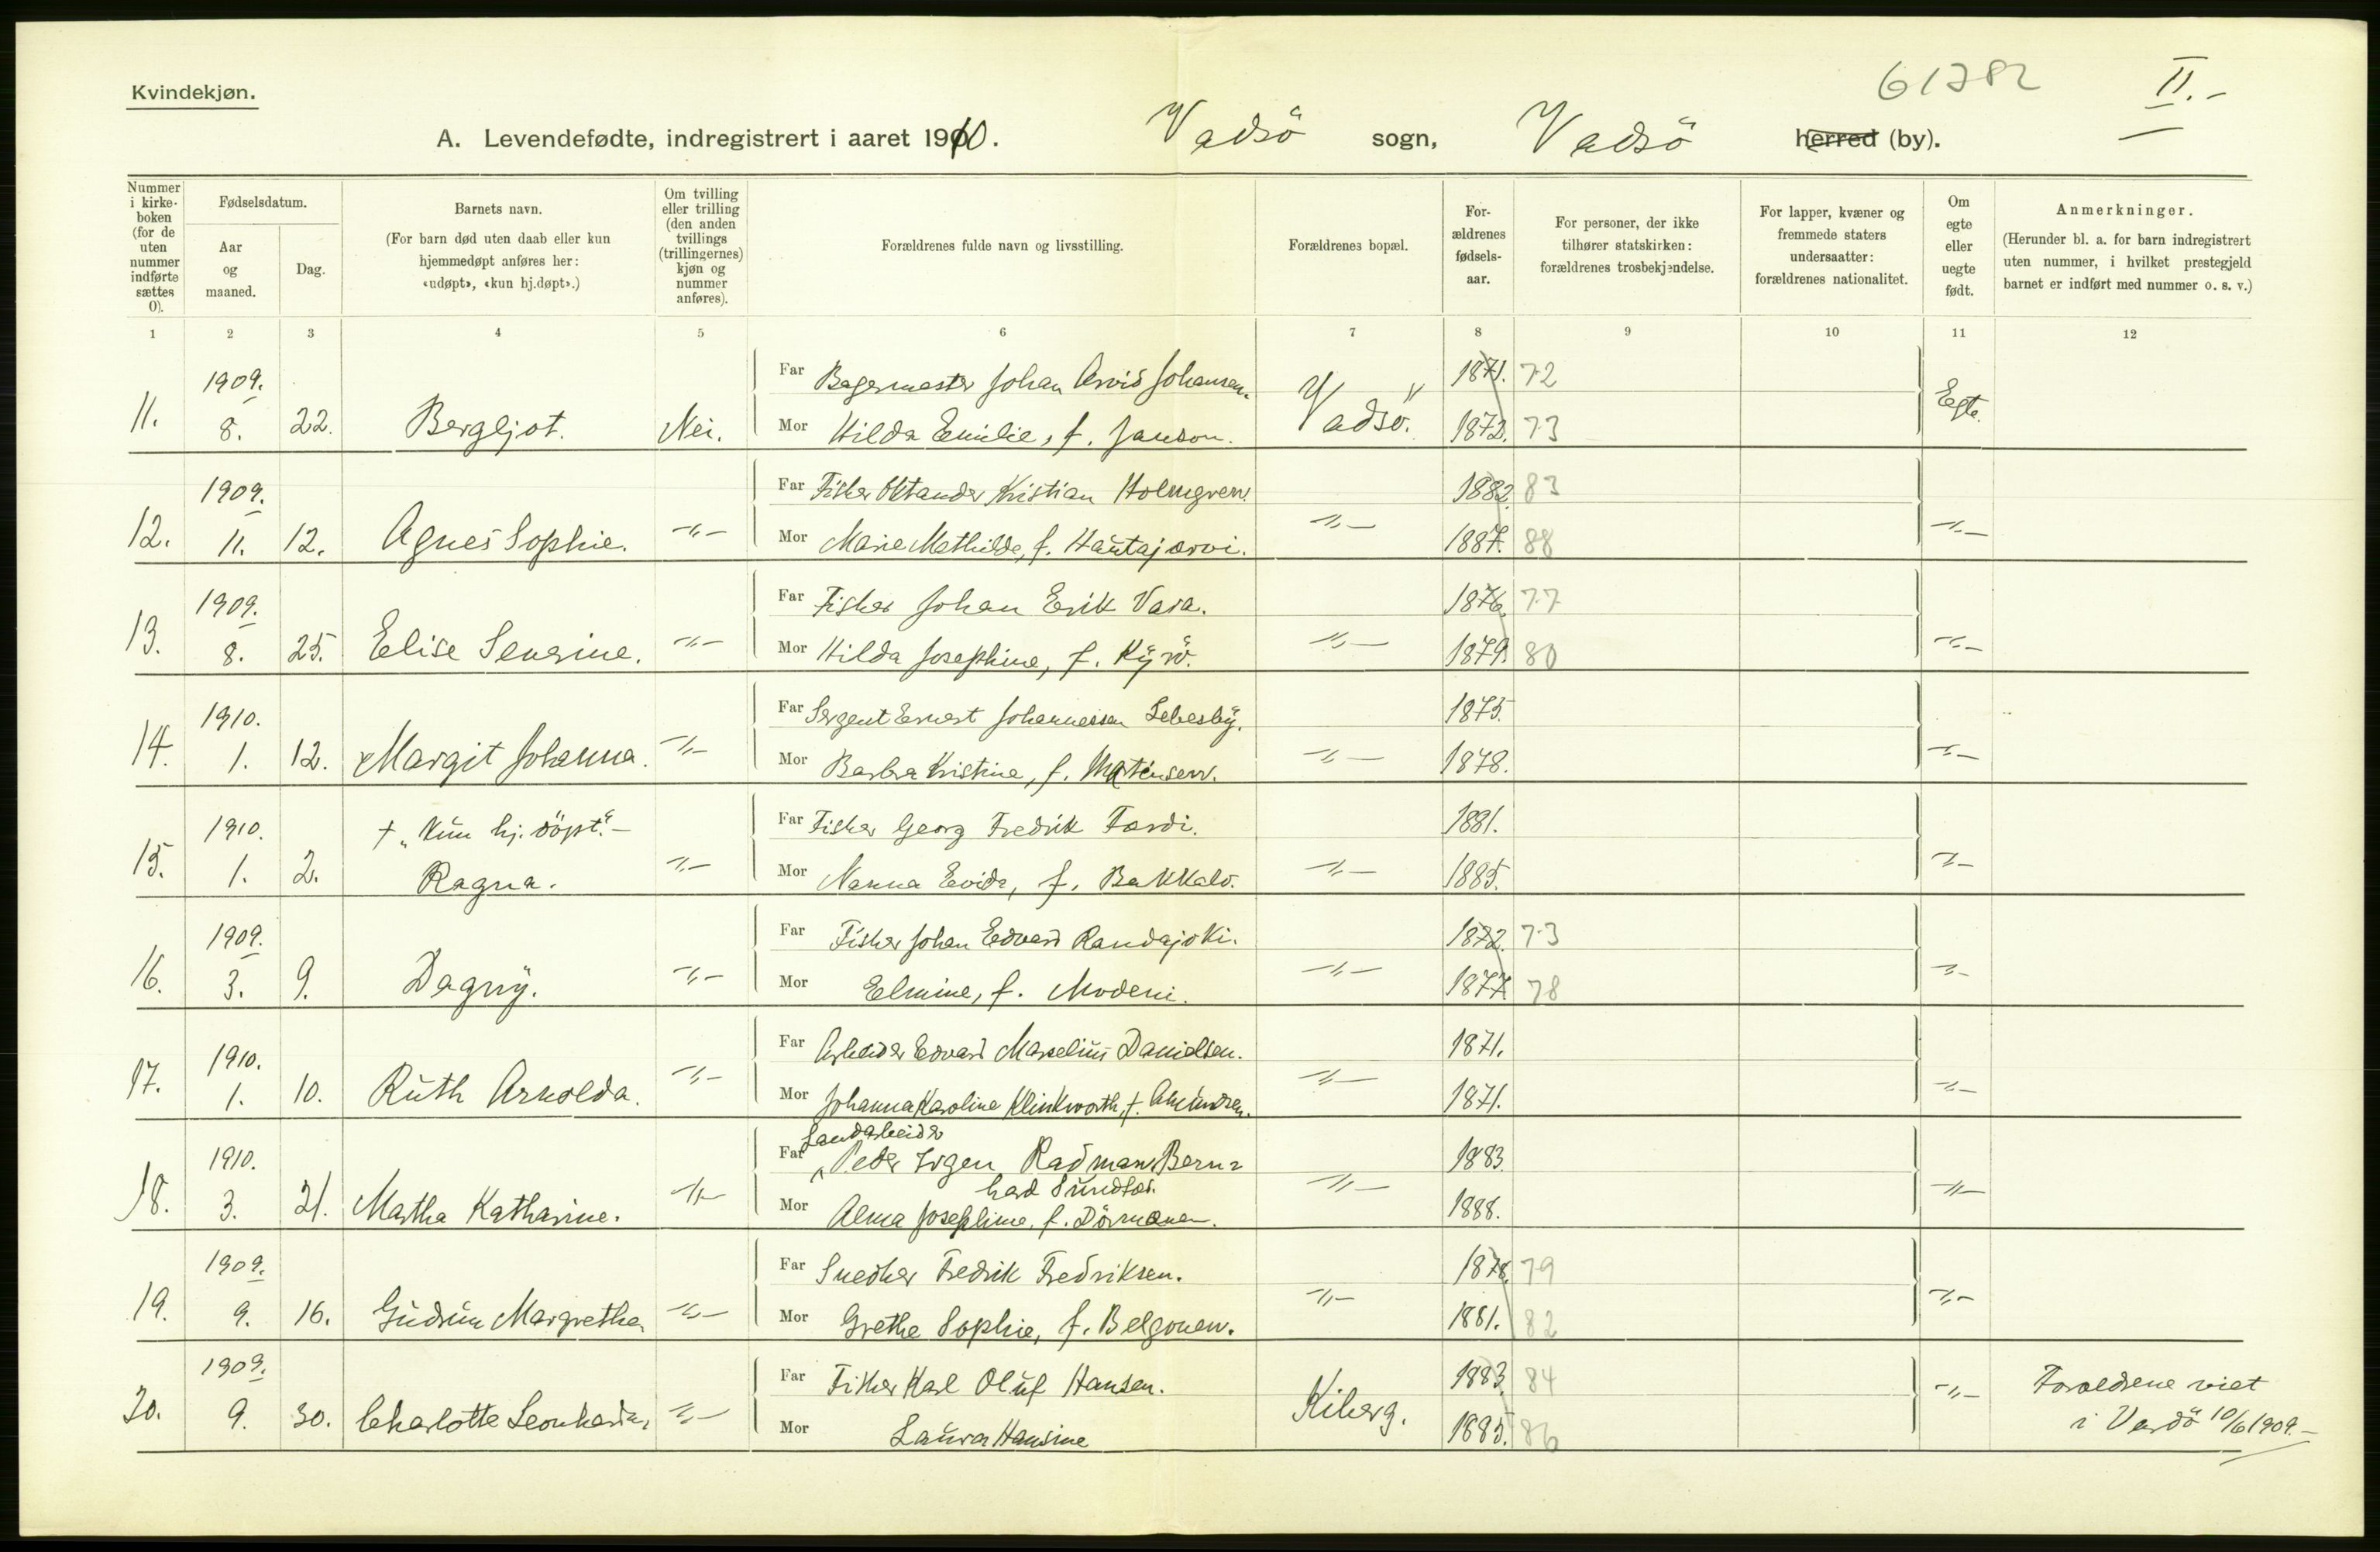 Kvindekjøn.
61782
II.-
A. Levendefødte, indregistrert i aaret 1910. Vadsö sogn, Vadsö herred (by).
Nummer i kirkeboken (for de uten nummer indførte sættes 0).
Fødselsdatum.
Aar og maaned.
Dag.
Barnets navn.
(For barn død uten daab eller kun hjemmedøpt anføres her: «udøpt», «kun hj.døpt».)
Om tvilling eller trilling (den anden tvillings (trillingernes) kjøn og nummer anføres).
Forældrenes fulde navn og livsstilling.
Forældrenes bopæl.
For-ældrenes fødsels-aar.
For personer, der ikke tilhører statskirken: forældrenes trosbekjendelse.
For lapper, kvæner og fremmede staters undersaatter: forældrenes nationalitet.
Om egte eller uegte født.
Anmerkninger.
(Herunder bl. a. for barn indregistrert uten nummer, i hvilket prestegjeld barnet er indført med nummer o. s. v.)
1 2 3 4 5 6 7 8 9 10 11 12
1909. Far Bagermester Johan Arvid Johansen. 1871. 72
11. 8. 22. Bergljot. Nei. Mor Hilda Emilie, f. Janson. Vadsö. 1872. 73 Egte.
1909. Far Fisker Oktander Kristian Holmgren 1882. 83
12. 11. 12. Agnes Sophie. -"- Mor Marie Mathilde, f. Hautajærvi. -"- 1887. 88 -"-
1909. Far Fisker Johan Erik Vara. 1876. 77
13. 8. 25. Elise Severine. -"- Mor Hilda Josephine, f. Kyrö. -"- 1879. 80 -"-
1910. Far Sergent Ernest Johannessen Lebesby. 1875.
14. 1. 12. Margit Johanna. -"- Mor Barbra Kristine, f. Mortensen. -"- 1878. -"-
1910. † "Kun hj. döpt." - Far Fisker Georg Fredrik Fordi. 1881.
15. 1. 2. Ragna. -"- Mor Nanna Evida, f. Bakkalo. -"- 1885. -"-
1909. Far Fisker Johan Edvard Randajoki. 1872. 73
16. 3. 9. Dagny. -"- Mor Elmine, f. Modeni. -"- 1877. 78 -"-
1910. Far Arbeider Edvard Marselius Danielsen. 1871.
17. 1. 10. Ruth Arnolda. -"- Mor Johanna Karoline Klinkworth, f. Amundsen. -"- 1871. -"-
Landarbeider
1910. Far Peder Irgen Radman Bern=
hard Sundfær. 1883.
18. 3. 21. Martha Katharine. -"- Mor Alma Josephine, f. Dörmænen. -"- 1888. -"-
1909. Far Snedker Fredrik Fredriksen. 1878. 79
19. 9. 16. Gudrun Margrethe. -"- Mor Grethe Sophie, f. Belgonen. -"- 1881. 82 -"-
1909. Far Fisker Karl Oluf Hansen. 1883. 84 Foreldrene viet
20. 9. 30. Charlotte Leonharda. -"- Mor Laura Hansine Kiberg. 1885. 86 -"- i Vardö 10/6 1909.-